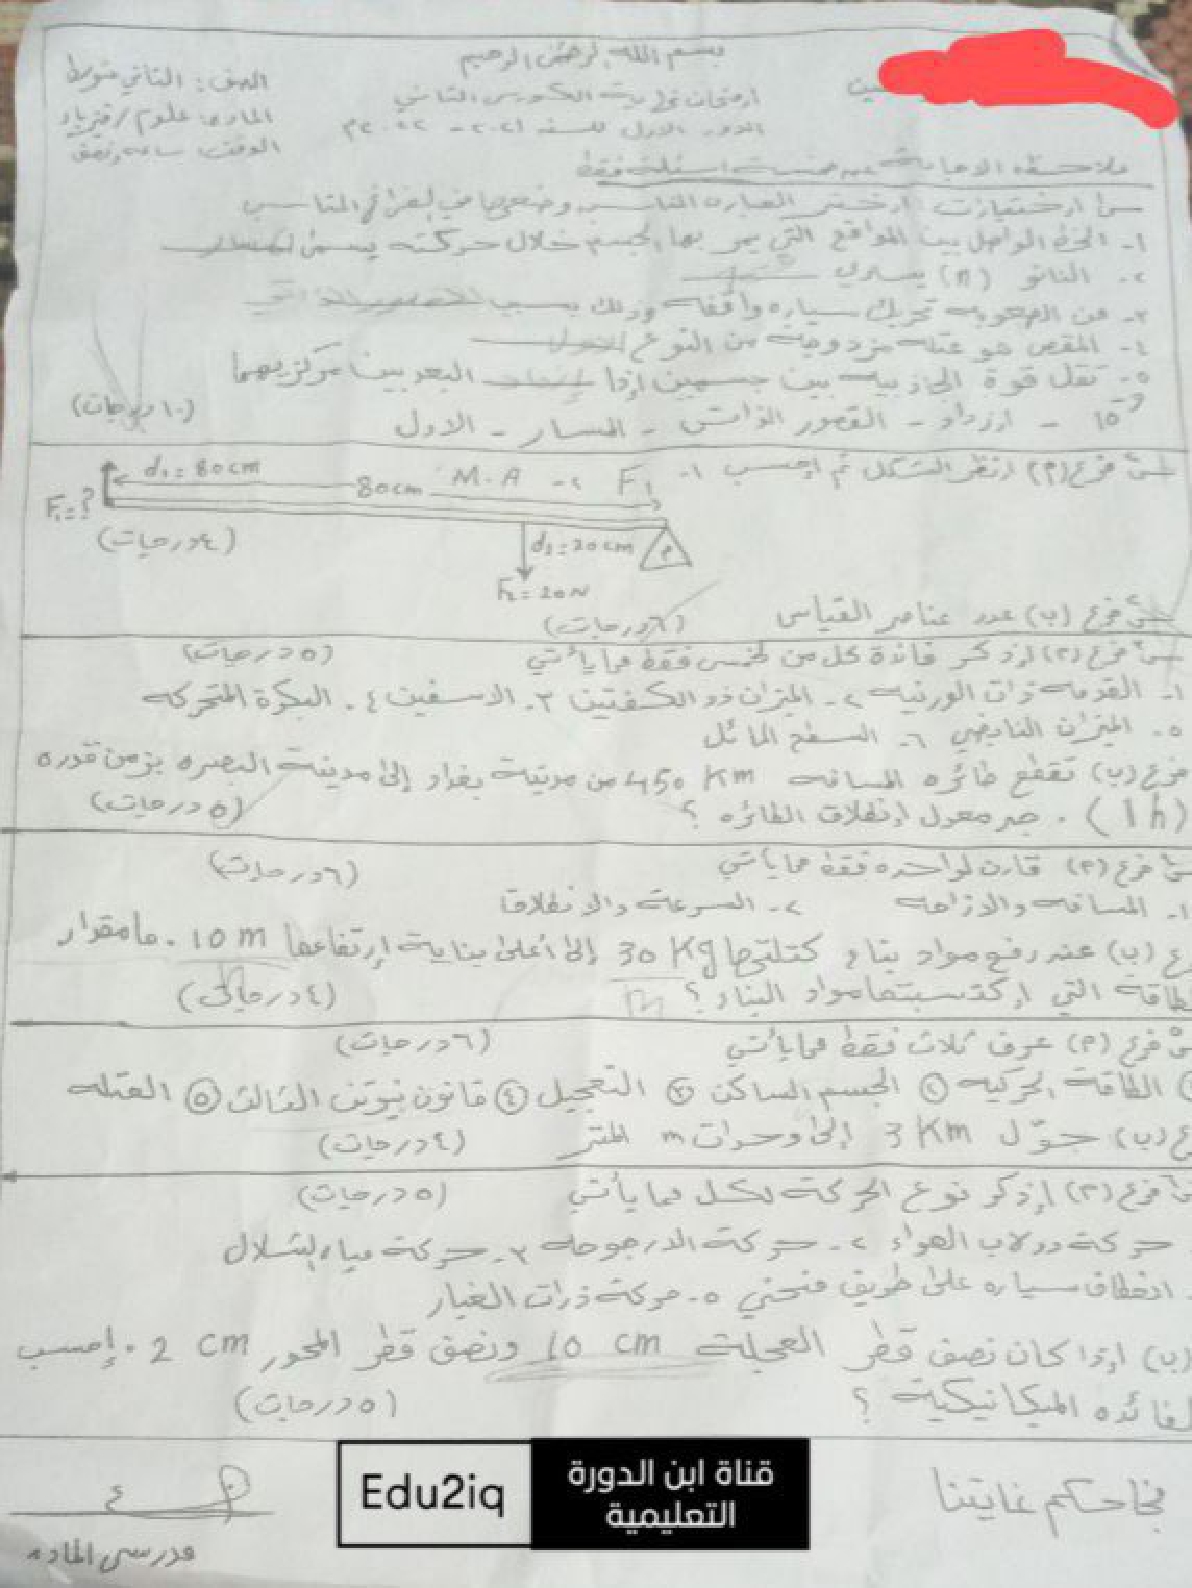 بسم الله الرحمن الرحيم
امتحان نهاية الكورس الثاني
الدور الاول للسنه ٢٠٢١ - ٢٠٢٢م
الصف: الثاني متوسط
المادة: علوم / فيزياء
الوقت: ساعه ونصف
ملاحظه الاجابة عن خمسة اسئلة فقط
س١ اختيارات اختر العباره المناسبه وضعها في الفراغ المناسب
١- الخط الواصل بين المواقع التي يمر بها الجسم خلال حركته يسمى المسار
٢- النانو (n) يساوي
٣- من الصعوبه تحريك سياره واقفه وذلك بسبب القصور الذاتي
٤- المقص هو عتله مزدوجه من النوع الاول
٥- تقل قوة الجاذبيه بين جسمين اذا ازداد البعد بين مركزيهما
10⁻⁹ - ازداد - القصور الذاتي - المسار - الاول
(١٠ درجات)
س٢ فرع (م) انظر الشكل ثم احسب ١- F₁ ٢- M.A
d₁ = 80cm
80cm
F₁ = ?
d₂ = 20cm
م
F₂ = 20N
(٤ درجات)
س٢ فرع (ب) عدد عناصر القياس (٦ درجات)
س٣ فرع (م) اذكر فائدة كل من لخمس فقط مما يأتي (٥ درجات)
١- القدمه ذات الورنيه ٢- الميزان ذو الكفتين ٣. الاسفين ٤. البكرة المتحركه
٥- الميزان النابضي ٦- السطح المائل
فرع (ب) تقطع طائره المسافه 450 Km من مدينة بغداد إلى مدينة البصره بزمن قدره
(1h). جد معدل إنطلاق الطائره ؟ (٥ درجات)
فرع (م) قارن لواحده فقط مما يأتي (٦ درجات)
١- المسافه والازاحه ٢- السرعة والانطلاق
(ب) عند رفع مواد بناء كتلتها 30 Kg إلى أعلى بناية إرتفاعها 10 m. ما مقدار
الطاقة التي اكتسبتها مواد البناء ؟ (٤ درجات)
فرع (م) عرف ثلاث فقط مما يأتي (٦ درجات)
الطاقة الحركيه ② الجسم الساكن ③ التعجيل ④ قانون نيوتن الثالث ⑤ العتله
(ب) حوّل 3 Km إلى وحدات m المتر (٤ درجات)
فرع (م) إذكر نوع الحركة لكل مما يأتي (٥ درجات)
حركة دولاب الهواء ٢- حركة الارجوحه ٣- حركة مياه الشلال
انعطاف سياره على طريق منحني ٥- حركة ذرات الغبار
(ب) إذا كان نصف قطر العجلة 10 cm ونصف قطر المحور 2 cm. إحسب
الفائده الميكانيكية ؟ (٥ درجات)
نجاحكم غايتنا
مدرسي الماده
Edu2iq
قناة ابن الدورة
التعليمية